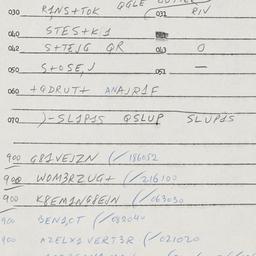 030 R1NS+TOK 031 RIV
040 STES+K1
042 S+TEJG QR 043 O
050 S+OSE,J 051 —
060 +QDRUT+ ANAJR1F
070 )-SL1P1S QSLUP SLUP1S
900 G81VEJZN (/186052
900 WOM3RZUG+ (/216100
900 K8EM1NG8EJN (/063030
900 BEN1,CT (/082040
900 AZELX1 VERT3R (/021020